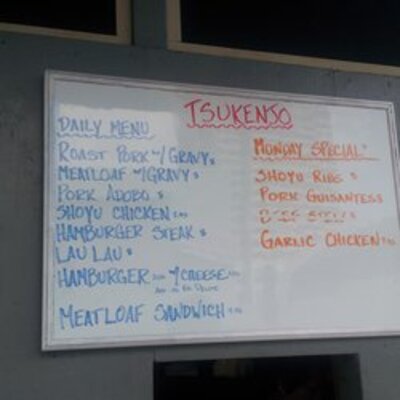 TSUKENJO
DAILY MENU
ROAST PORK W/ GRAVY
MEATLOAF W/ GRAVY
PORK ADOBO
SHOYU CHICKEN
HAMBURGER STEAK
LAU LAU
HAMBURGER W/ CHEESE
MEATLOAF SANDWICH
MONDAY SPECIAL
SHOYU RIBS
PORK GUISANTESS
GARLIC CHICKEN